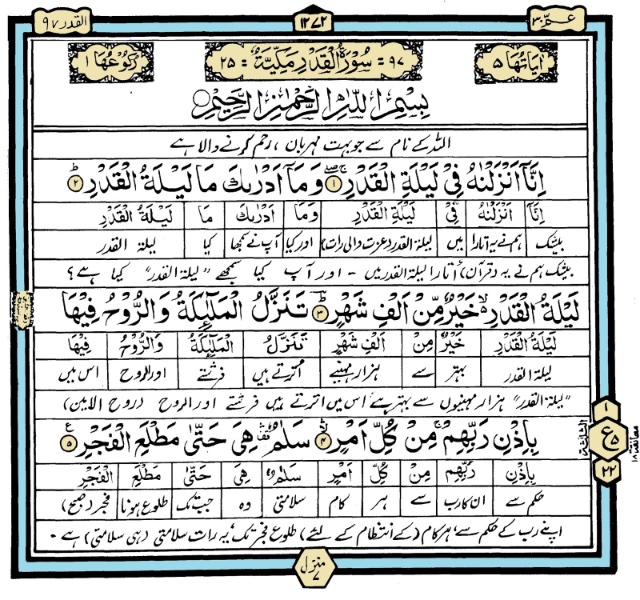 القدر ٩٧
١٢٧٢
عـمّ ٣٠
اٰیَاتُهَا ٥
٩٧ = سُوْرَةُ الْقَدْرِ مَكِّيَّةٌ = ٢٥
رُكُوْعُهَا ١
بِسْمِ اللّٰهِ الرَّحْمٰنِ الرَّحِيْمِ
اللہ کے نام سے جو بہت مہربان ، رحم کرنے والا ہے
اِنَّاۤ اَنْزَلْنٰهُ فِیْ لَیْلَةِ الْقَدْرِ ۚۖ ١ وَ مَاۤ اَدْرٰىكَ مَا لَیْلَةُ الْقَدْرِ ؕ ٢
اِنَّاۤ اَنْزَلْنٰهُ فِیْ لَیْلَةِ الْقَدْرِ وَمَاۤ اَدْرٰىكَ مَا لَیْلَةُ الْقَدْرِ
بیشک ہم نے یہ اتارا میں لیلۃ القدر (عزت والی رات) اور کیا آپ نے سمجھا کیا لیلۃ القدر
بیشک ہم نے یہ (قرآن) اُتارا لیلۃ القدر میں - اور آپ کیا سمجھے "لیلۃ القدر" کیا ہے؟
لَیْلَةُ الْقَدْرِ ۙ۬ خَیْرٌ مِّنْ اَلْفِ شَهْرٍ ؕؔ ٣ تَنَزَّلُ الْمَلٰٓىِٕكَةُ وَ الرُّوْحُ فِیْهَا
لَیْلَةُ الْقَدْرِ خَیْرٌ مِنْ اَلْفِ شَهْرٍ تَنَزَّلُ الْمَلٰٓىِٕكَةُ وَالرُّوْحُ فِیْهَا
لیلۃ القدر بہتر سے ہزار مہینے اترتے ہیں فرشتے اور الروح اس میں
"لیلۃ القدر" ہزار مہینوں سے بہتر ہے، اس میں اترتے ہیں فرشتے اور الروح (روح الامین)
بِاِذْنِ رَبِّهِمْ ۚ مِنْ كُلِّ اَمْرٍ ۙۛ ٤ سَلٰمٌ ۛ۫ هِیَ حَتّٰى مَطْلَعِ الْفَجْرِ ٥
بِاِذْنِ رَبِّهِمْ مِنْ كُلِّ اَمْرٍ سَلٰمٌ هِیَ حَتّٰى مَطْلَعِ الْفَجْرِ
حکم سے ان کا رب سے ہر کام سلامتی وہ جب تک طلوع ہونا فجر (صبح)
اپنے رب کے حکم سے، ہر کام (کے انتظام کے لئے) طلوع فجر تک، یہ رات سلامتی (ہی سلامتی) ہے -
١
ع ٥
٢٢
معانقة ١٨
منزل ٧